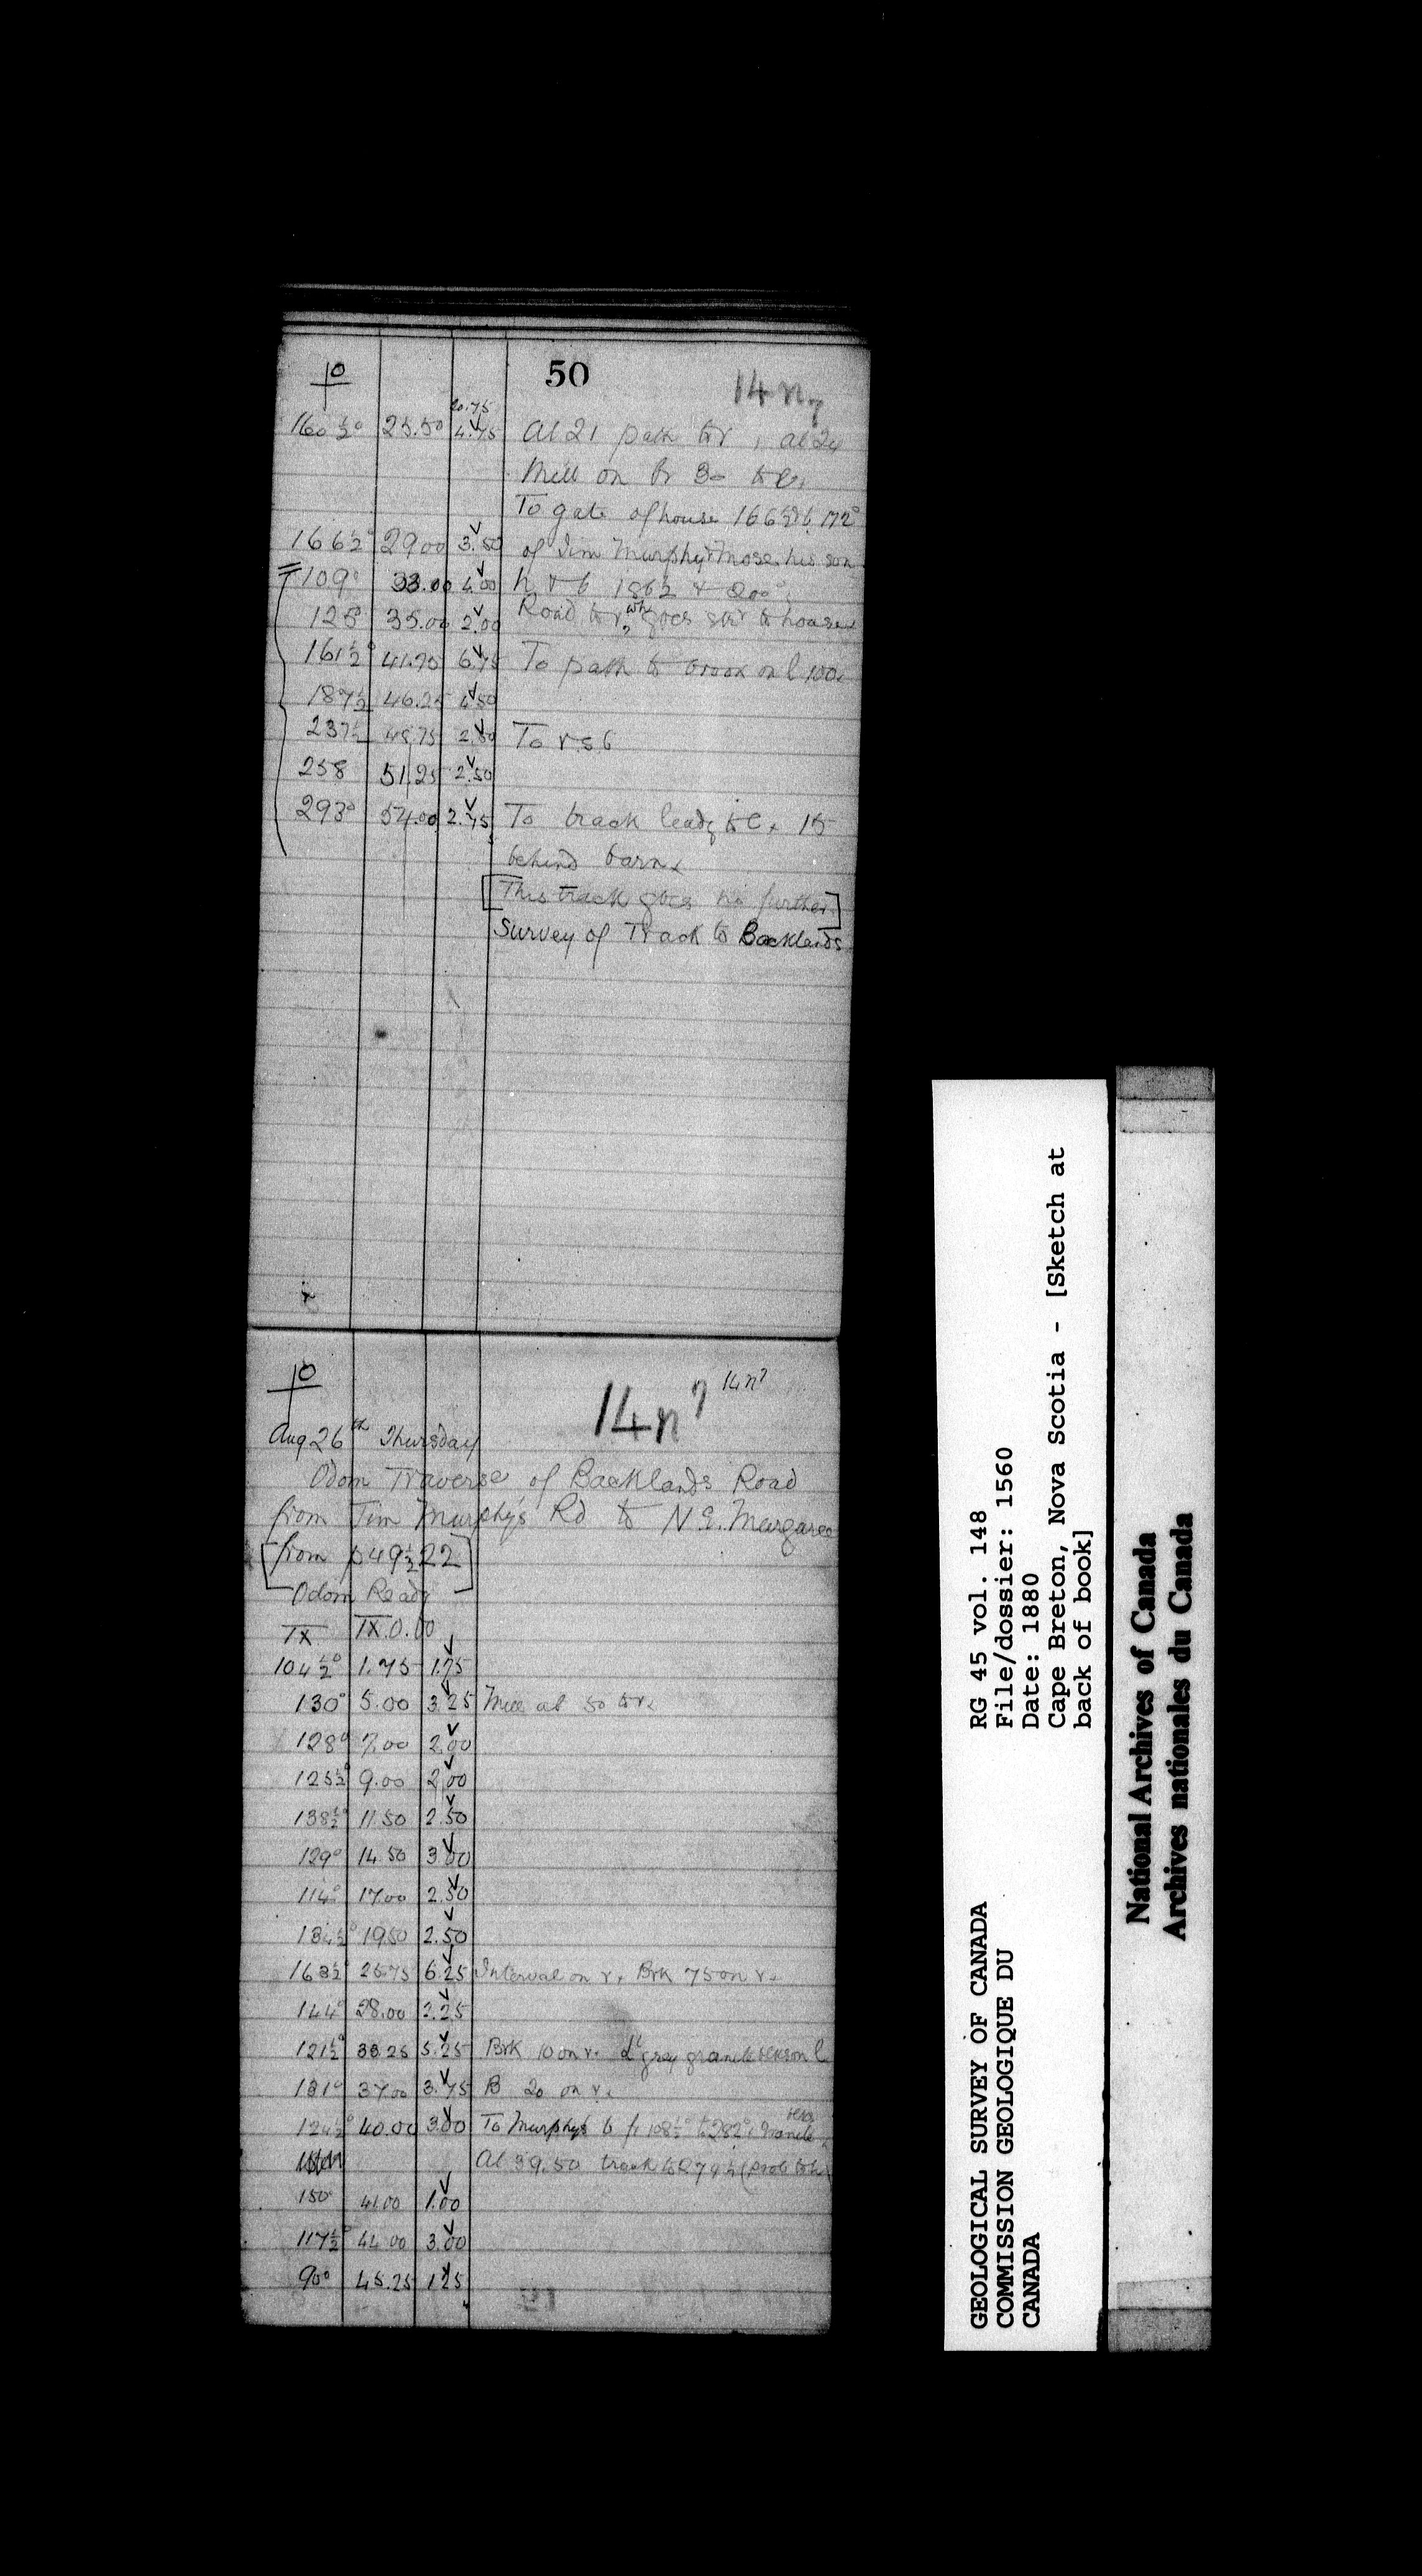 50
14 n 7
20.75
160 ½° 25.50 4.75 At 21 path to r, at 24
Mill on br 30 to l.
To gate of house 166½° b 172°
166½° 29.00 3.50 of Jim Murphy & Mose his son
109° 33.00 4.00 h & b 186½ & 200°
125° 35.00 2.00 Road to r, wh goes to house
161½° 41.75 6.75 To path to brook on l 100.
187½ 46.25 4.50
237½ 48.75 2.50 To r s b
258 51.25 2.50
293° 54.00 2.75 To track leadg to l. 15
behind barn.
[This track goes no further]
Survey of Track to Backlands
14 n 7
14 n 7
Aug 26th Thursday
Odom Traverse of Backlands Road
from Jim Murphy's Rd to N.E. Margaree
[from p 49½ 22]
Odom Readg
TX TX 0.00
104½° 1.75 1.75
130° 5.00 3.25 Mill at 50 to r.
128° 7.00 2.00
125½° 9.00 2.00
138½° 11.50 2.50
129° 14.50 3.00
114° 17.00 2.50
134½° 19.50 2.50
163½° 25.75 6.25 Interval on r. Brk 75 on r.
144° 28.00 2.25
121½° 33.25 5.25 Brk 10 on r. grey granite on l
131° 37.00 3.75 B 20 on r.
124½° 40.00 3.00 To Murphy's b fr 108½° to 282°. Granite
At 39.50 track to
150° 41.00 1.00
117½° 44.00 3.00
90° 45.25 1.25
GEOLOGICAL SURVEY OF CANADA
COMMISSION GEOLOGIQUE DU
CANADA
RG 45 vol. 148
File/dossier: 1560
Date: 1880
Cape Breton, Nova Scotia - [Sketch at
back of book]
National Archives of Canada
Archives nationales du Canada